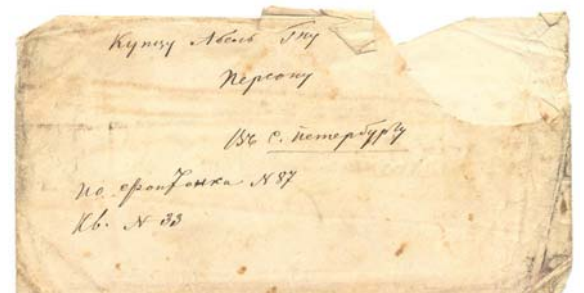 Купцу Абель Гну
Персону
Въ С. Петербургу
по фонтанка N 87
Кв. N 33